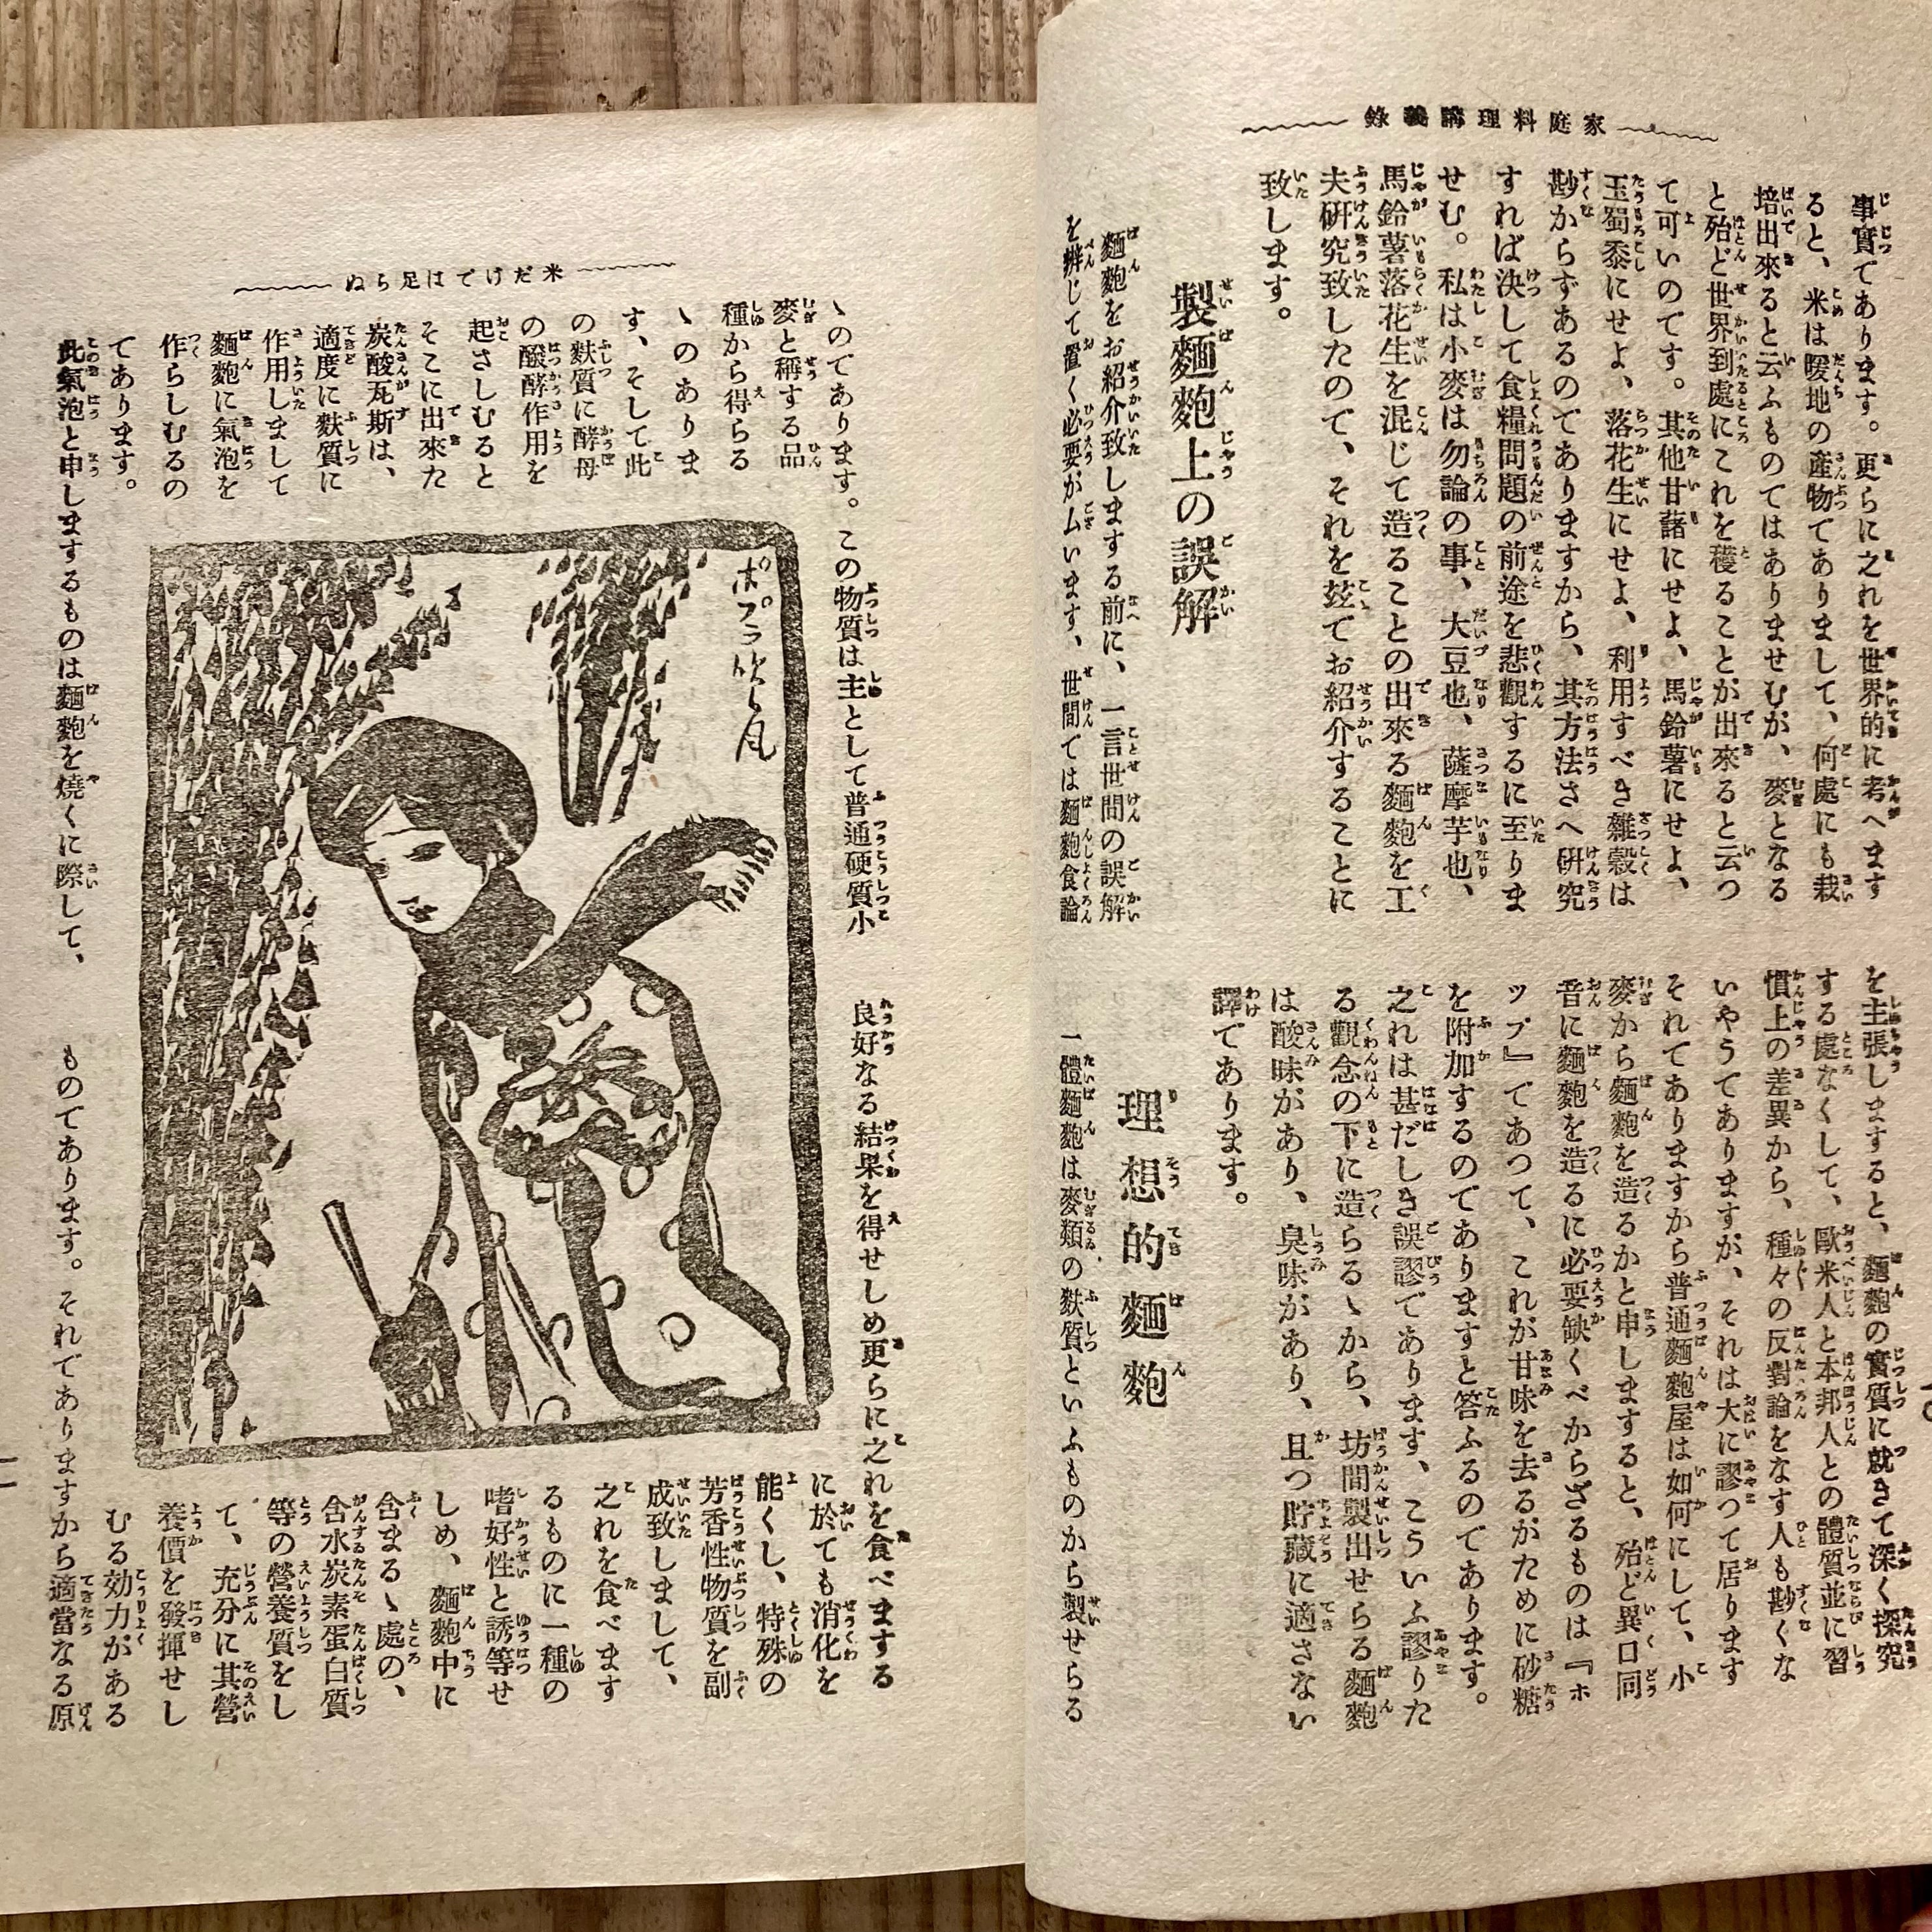 家庭料理講義錄
事實であります。更らに之れを世界的に考へます
ると、米は暖地の產物でありまして、何處にも栽
培出來ると云ふものではありませむが、麥となる
と殆ど世界到處にこれを穫ることが出來ると云つ
て可いのです。其他甘藷にせよ、馬鈴薯にせよ、
玉蜀黍にせよ、落花生にせよ、利用すべき雜穀は
尠からずあるのでありますから、其方法さへ硏究
すれば決して食糧問題の前途を悲觀するに至りま
せむ。私は小麥は勿論の事、大豆也、薩摩芋也、
馬鈴薯落花生を混じて造ることの出來る麵麭を工
夫硏究致したので、それを玆でお紹介することに
致します。
製麵麭上の誤解
麵麭をお紹介致しまする前に、一言世間の誤解
を辨じて置く必要がムいます、世間では麵麭食論
を主張しますると、麵麭の實質に就きて深く探究
する處なくして、歐米人と本邦人との體質並に習
慣上の差異から、種々の反對論をなす人も尠くな
いやうでありますが、それは大に謬つて居ります
それでありますから普通麵麭屋は如何にして、小
麥から麵麭を造るかと申しますると、殆ど異口同
音に麵麭を造るに必要缺くべからざるものは『ホ
ップ』であつて、これが甘味を去るがために砂糖
を附加するのでありますと答ふるのであります。
之れは甚だしき誤謬であります、こういふ謬りた
る觀念の下に造らるゝから、坊間製出せらる麵麭
は酸味があり、臭味があり、且つ貯藏に適さない
譯であります。
理想的麵麭
一體麵麭は麥類の麩質といふものから製せらる
米だけでは足らぬ
ゝのであります。この物質は主として普通硬質小
麥と稱する品
種から得らる
ゝのありま
す、そして此
の麩質に酵母
の醱酵作用を
起さしむると
そこに出來た
炭酸瓦斯は、
適度に麩質に
作用しまして
麵麭に氣泡を
作らしむるの
であります。
此氣泡と申しまするものは麵麭を燒くに際して、
ポプラ吹く風
良好なる結果を得せしめ更らに之れを食べまする
に於ても消化を
能くし、特殊の
芳香性物質を副
成致しまして、
之れを食べます
るものに一種の
嗜好性と誘等せ
しめ、麵麭中に
含まるゝ處の、
含水炭素蛋白質
等の營養質をし
て、充分に其營
養價を發揮せし
むる効力がある
ものであります。それでありますから適當なる原